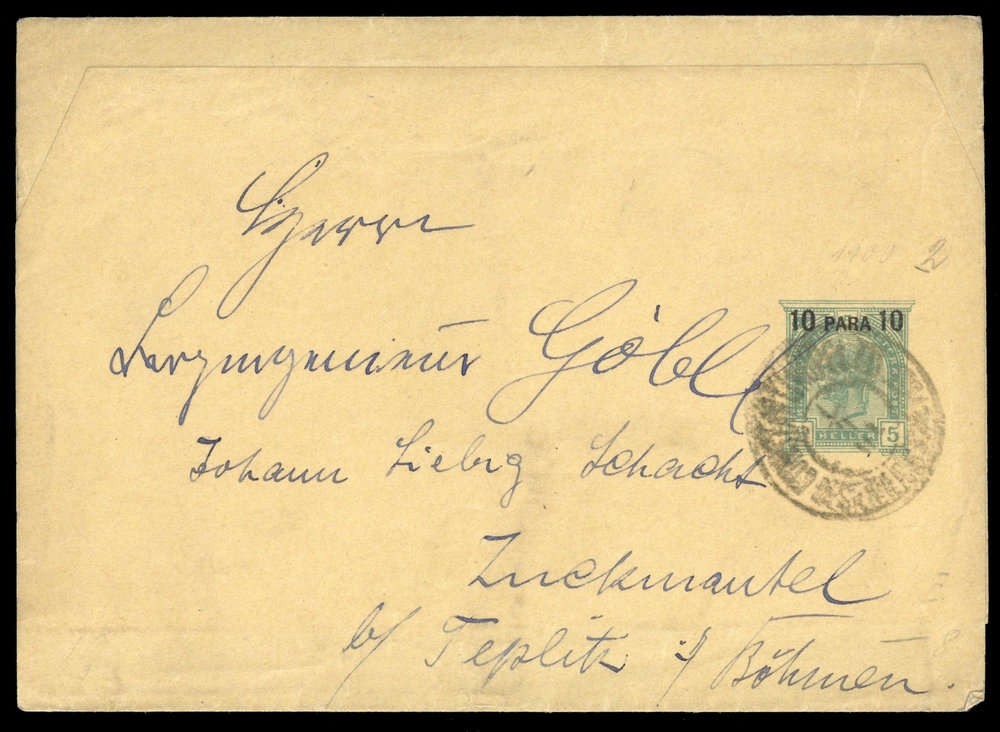 Herrn
1900 2
10 PARA 10
Bergingenieur Göbl
5 HELLER 5
Johann Liebig Schacht
Zuckmantel
b/ Teplitz i/ Böhmen.